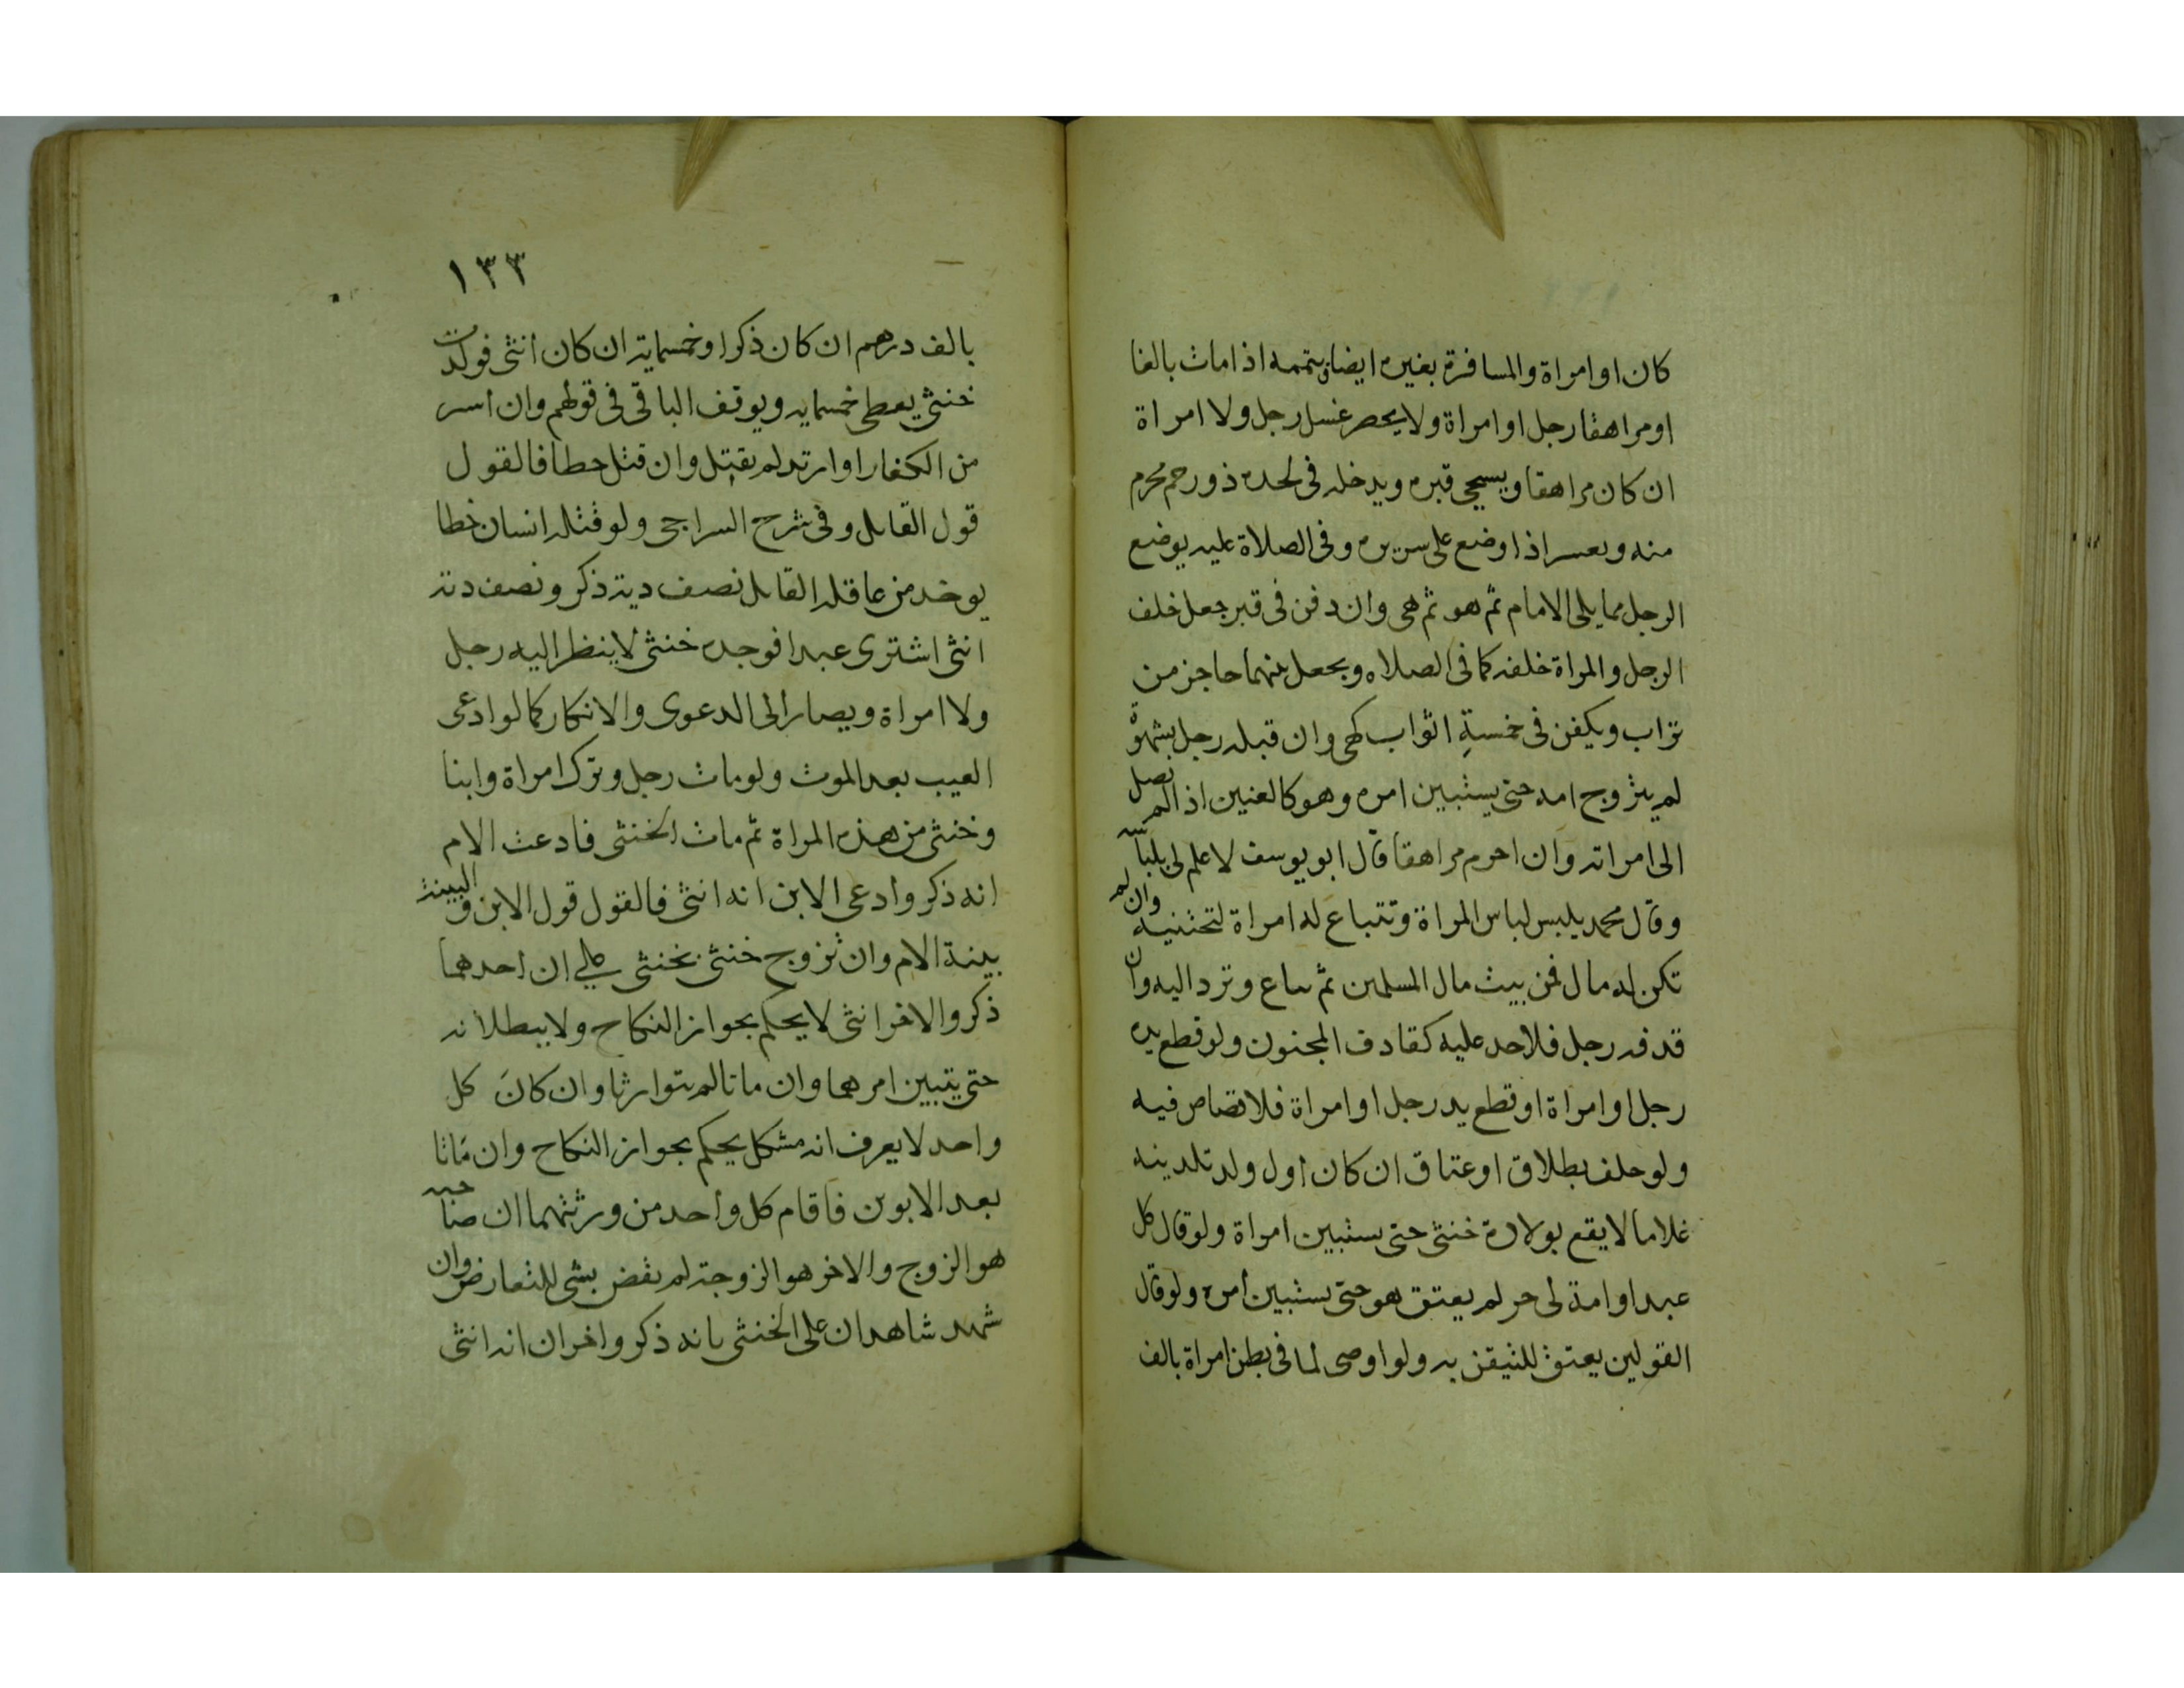 كان او امراة والمسافرة بغيره ايضا ويتممه اذا مات بالغا
او مراهقا رجل او امراة ولا يحصر غسل رجل ولا امراة
ان كان مراهقا ويسجى قبره ويدخله فى لحده ذو رحم محرم
منه وبعسر اذا وضع على سريره وفى الصلاة عليه يوضع
الرجل مما يلى الامام ثم هو ثم هى وان دفن فى قبر جعل خلف
الرجل والمراة خلفه كما فى الصلاه ويجعل بينهما حاجز من
تراب ويكفن فى خمسة اثواب كهى وان قبله رجل بشهوة
لم يتزوج امه حتى يستبين امره وهو كالعنين اذا لم يصل
الى امراته وان احرم مراهقا قال ابو يوسف لا علم لى بلباسه
وقال محمد يلبس لباس المراة وتتباع له امراة لتختنيه وان لم
تكن له مال فمن بيت مال المسلمين ثم ساع وترد اليه وان
قدفه رجل فلا حد عليه كقادف المجنون ولو قطع يده
رجل او امراة او قطع يد رجل او امراة فلا قصاص فيه
ولو حلف بطلاق او عتاق ان كان اول ولد تلدينه
غلاما لا يقع بولادة خنثى حتى يستبين امراة ولو قال كل
عبد او امة لى حر لم يعتق هو حتى يستبين امره ولو قال
القولين يعتق للتيقن به ولو اوصى لما فى بطن امراة بالف
١٣٣
بالف درهم ان كان ذكرا وخمسماية ان كان انثى فولدت
خنثى يعطى خمسمايه ويوقف الباقى فى قولهم وان اسر
من الكفار او ارتد لم يقتل وان قتل خطا فالقول
قول القاىل وفى شرح السراجى ولو قتله انسان خطا
يوخد من عاقله القاىل نصف دية ذكر ونصف دية
انثى اشترى عبدا فوجده خنثى لا ينظر اليه رجل
ولا امراة ويصار الى الدعوى والانكار كما لو ادعى
العيب بعد الموت ولو مات رجل وترك امراة وابنا
وخنثى من هذه المراة ثم مات الخنثى فادعت الام
انه ذكر وادعى الابن انه انثى فالقول قول الابن والبينة
بينة الام وان تزوج خنثى بخنثى على ان احدهما
ذكر والاخر انثى لا يحكم بجواز النكاح ولا ببطلانه
حتى يتبين امرهما وان ماتا لم يتوارثا وان كان كل
واحد لا يعرف انه مشكل يحكم بجواز النكاح وان ماتا
بعد الابوين فاقام كل واحد من ورثتهما ان صاحبه
هو الزوج والاخر هو الزوجة لم يقض بشى للتعارض وان
شهد شاهدان على الخنثى بانه ذكر واخران انه انثى